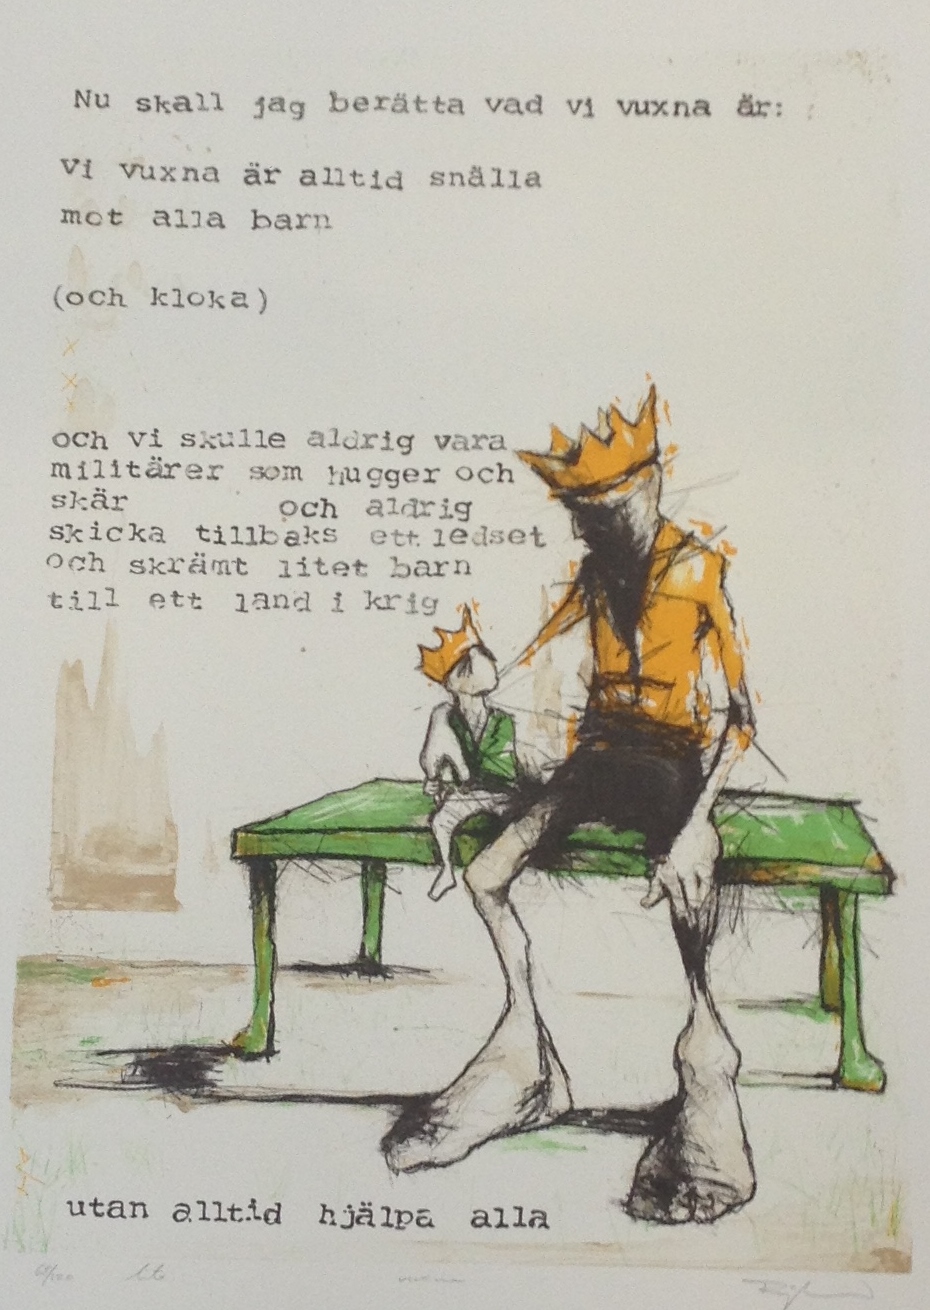 Nu skall jag berätta vad vi vuxna är:
Vi vuxna är alltid snälla
mot alla barn
(och kloka)
och vi skulle aldrig vara
militärer som hugger och
skär och aldrig
skicka tillbaks ett ledset
och skrämt litet barn
till ett land i krig
utan alltid hjälpa alla